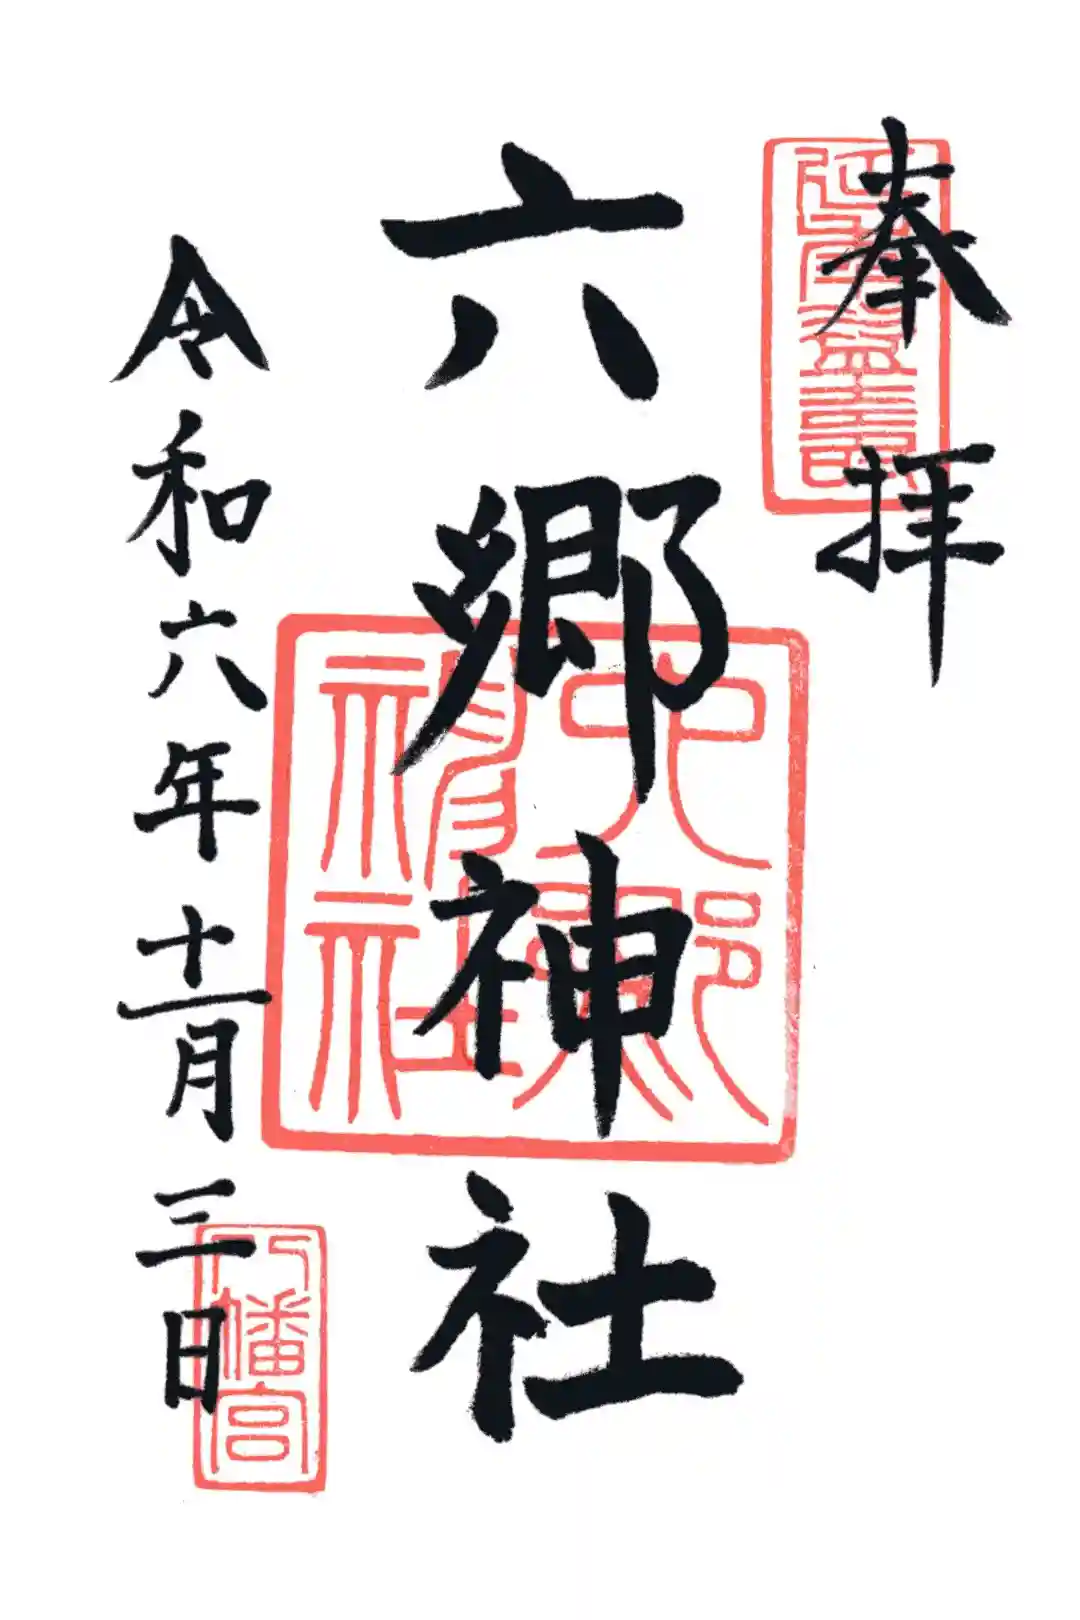 奉拝
延年益壽
六郷神社
六郷神社
令和六年十一月三日
八幡宮